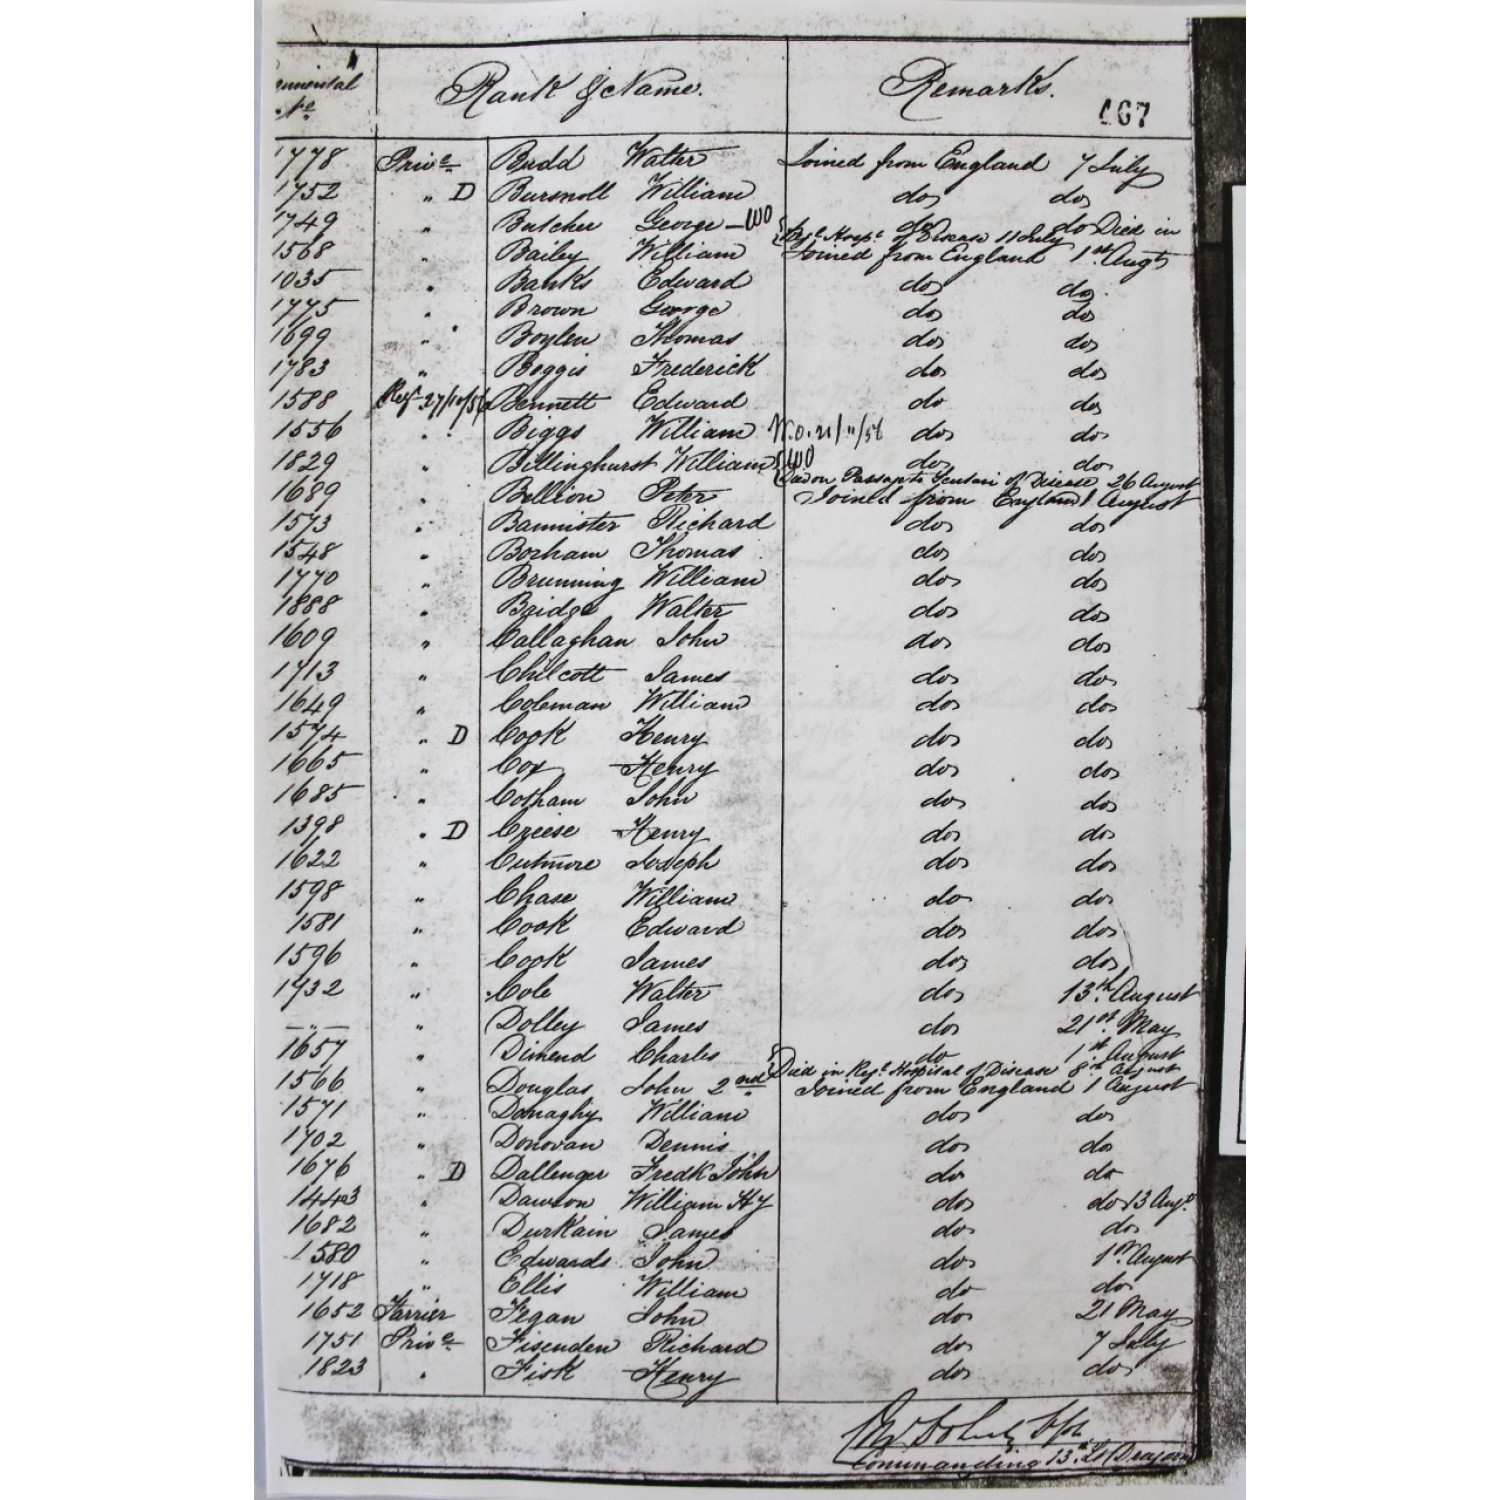 Rank & Name. Remarks.
No 167
1778 Priv. Budd Walter Joined from England 7 July
1752 " D Bursnoll William do do
1749 " Butcher George - WO do do Died in
Regl. Hospl. of Disease 11 July
1568 " Bailey William Joined from England 1st Augt
1035 " Banks Edward do do
1775 " Brown George do do
1699 " Boylen Thomas do do
1783 " Boggis Frederick do do
1588 27/10/56 Bennett Edward do do
1556 " Biggs William W.O. 21/11/56 do do
1829 " Billinghurst William WO do do
Died on Passage to Scutari of Disease 26 August
1689 " Bellion Peter Joined from England 1 August
1573 " Bannister Richard do do
1548 " Borham Thomas do do
1770 " Brunning William do do
1888 " Bridge Walter do do
1609 " Callaghan John do do
1713 " Chilcott James do do
1649 " Coleman William do do
1574 " D Cook Henry do do
1665 " Cox Henry do do
1685 " Cotham John do do
1398 " D Creese Henry do do
1622 " Cutmore Joseph do do
1598 " Chase William do do
1581 " Cook Edward do do
1596 " Cook James do do
1732 " Cole Walter do 13th August
— " — " Dolley James do 21st May
1657 " Dimend Charles do 1st August
Died in Regl. Hospital of Disease 8th August
1566 " Douglas John 2nd Joined from England 1 August
1571 " Donaghy William do do
1702 " Donovan Dennis do do
1676 " D Dallenger Fredk John do do
1443 " Dawson William Hy do do 13 Augt
1682 " Durkain James do do
1580 " Edwards John do 1st August
1718 " Ellis William do do
1652 Farrier Fegan John do 21 May
1751 Priv. Fisenden Richard do 7 July
1823 " Fisk Henry do do
Commanding 13th Lt Dragoons